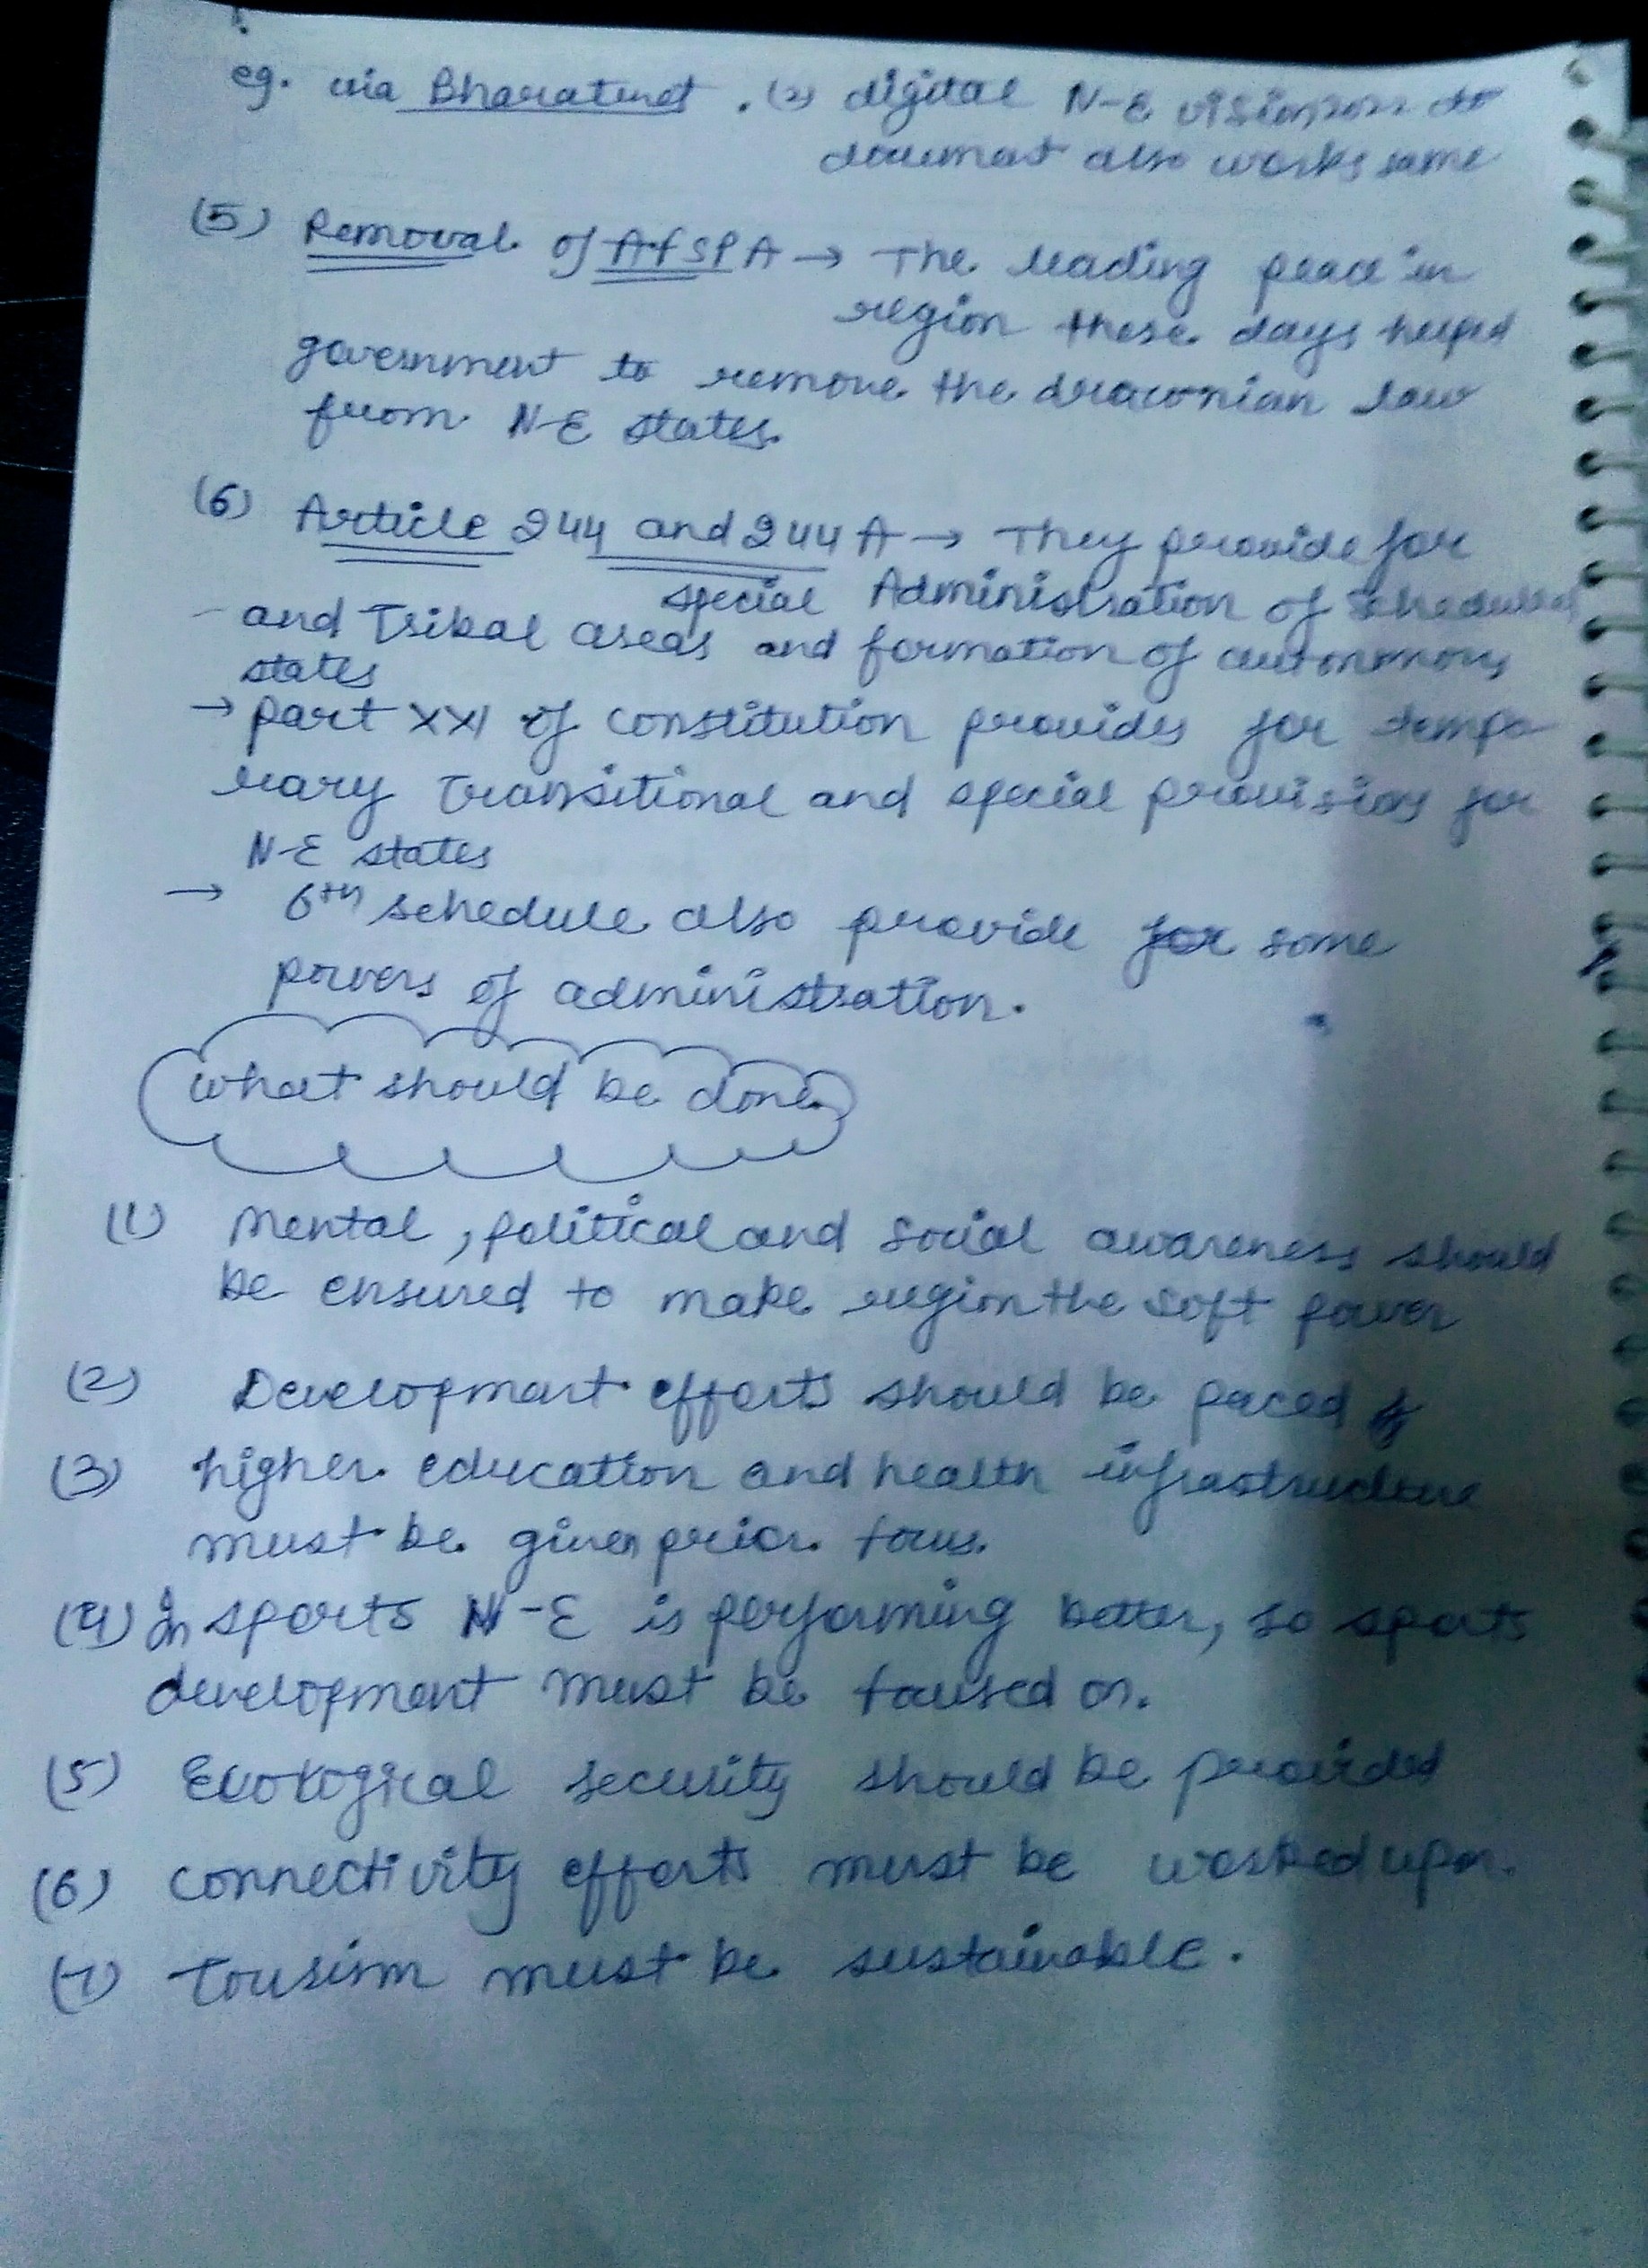 eg. via Bharatnet. (2) digital N-E vision 2022 do
document also works same
(5) Removal of AfSPA → The leading peace in
region these days helped
government to remove the draconian law
from N-E states.
(6) Article 244 and 244A → They provide for
special Administration of scheduled
and Tribal areas and formation of autonomous
states
→ part XXI of constitution provides for tempo
rary transitional and special provisions for
N-E states
→ 6th schedule also provide for some
powers of administration.
what should be done
(1) Mental, political and social awareness should
be ensured to make region the soft power
(2) Development efforts should be paced
(3) higher education and health infrastructure
must be given prior focus.
(4) In sports N-E is performing better, so sports
development must be focused on.
(5) Ecological security should be provided
(6) connectivity efforts must be worked upon.
(7) Tourism must be sustainable.